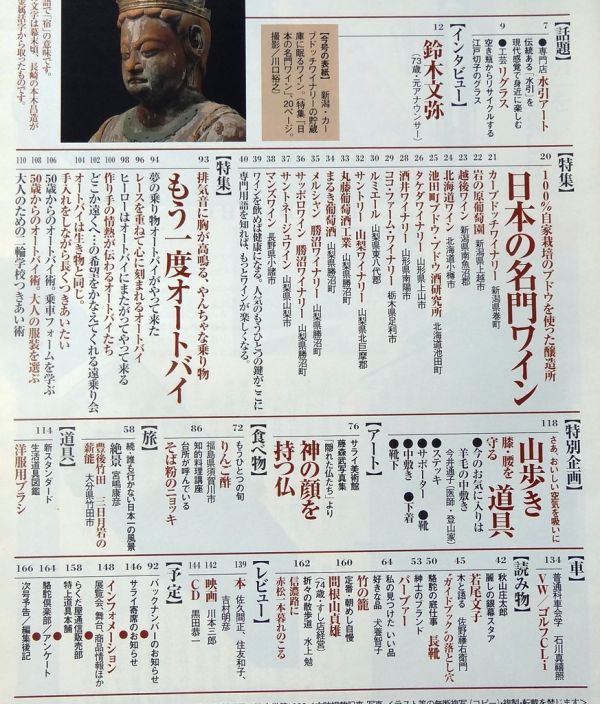 【話題】
7 ●専門店 水引アート
伝統ある「水引」を
現代感覚で身近に楽しむ
9 ●工芸 リグラス
空き瓶からリサイクルする
江戸切子のグラス
【インタビュー】
12 鈴木文弥
(73歳・元アナウンサー)
【今号の表紙】 新潟、カー
ブドッチワイナリーの貯蔵
庫に眠るワイン。特集「日
本の名門ワイン」20ページ。
撮影/川口裕之
語で「宿」の意味です。
文字は幕末頃、長崎の本木昌造が
金属活字から取ったものです。
【特集】
20 100%自家栽培のブドウを使った醸造所
日本の名門ワイン
21 カーブドッチワイナリー 新潟県巻町
22 岩の原葡萄園 新潟県上越市
23 越後ワイン 新潟県南魚沼郡
24 北海道ワイン 北海道小樽市
25 池田町ブドウ・ブドウ酒研究所 北海道池田町
26 タケダワイナリー 山形県上山市
28 酒井ワイナリー 山形県南陽市
29 ココ・ファーム・ワイナリー 栃木県足利市
30 ルミエール 山梨県東八代郡
32 サントリー 山梨ワイナリー 山梨県北巨摩郡
33 丸藤葡萄酒工業 山梨県勝沼町
34 まるき葡萄酒 山梨県勝沼町
35 メルシャン 勝沼ワイナリー 山梨県勝沼町
36 サッポロワイン 勝沼ワイナリー 山梨県勝沼町
37 サントネージュワイン 山梨県山梨市
38 マンズワイン 長野県小諸市
39 ワインを飲めば健康になる。人気のもうひとつの鍵がここに
40 専門用語を知れば、もっとワインが楽しくなる。
【特集】
93 排気音に胸が高鳴る、やんちゃな乗り物
もう一度オートバイ
94 夢の乗り物オートバイがやって来た
96 レースを重ねて心に刻まれるオートバイ
98 ヒーローはオートバイにまたがってやって来る
100 作り手の情熱が伝わるオートバイたち
102 どこか遠くへ…の希望をかなえてくれる遠乗り会
104 オートバイは生き物と同じ。
手入れをしながら長くつきあいたい
106 50歳からのオートバイ術。乗車フォームを学ぶ
108 50歳からのオートバイ術。大人の服装を選ぶ
110 大人のための二輪学校つきあい術
【特別企画】
118 さあ、おいしい空気を吸いに
山歩き
膝・腰を守る 道具
●今のお気に入りは
羊毛の中敷き
今井通子(医師・登山家)
●ステッキ
●サポーター ●靴
●中敷き ●下着
●靴下
【アート】
76 サライ美術館
藤森武写真集
「隠れた仏たち」より
神の顔を
持つ仏
【食べ物】
72 もうひとつの旬
りんご酢
福島県須賀川市
86 知的料理講座
台所が呼んでいる
そば粉のニョッキ
【旅】
58 続・誰も行かない日本一の風景
絶景 宮嶋康彦
豊後竹田 三日月岩の
薪能 大分県竹田市
【道具】
114 新スタンダード
生活道具図鑑
洋服用ブラシ
【車】
134 普通科車会学 石川真禧照
VW/ゴルフCLi
【読み物】
42 秋山庄太郎
麗しの銀幕スタア
若尾文子
45 木と語る 佐野藤右衛門
“ガイドブック”の落とし穴
50 駱駝の庭仕事 長靴
53 紳士のブランド
バーブァー
64 私の見つけた いい品
好きな品 犬養智子
160 定番・朝めし自慢
竹の籠
間根山貞雄
(74歳・すし店経営)
162 折々の散歩道 水上勉
信濃路に
赤松一本暮れのこる
【レビュー】
139 本 佐久間正、住友和子、
吉村明彦
142 映画 川本三郎
144 CD 黒田恭一
【予定】
92 バックナンバーのお知らせ
146 サライ寄席のお知らせ
148 インフォメーション
展覧会、舞台、商品情報ほか
158 らくだ屋通信販売部
特上道具本舗
164 駱駝倶楽部/アンケート
166 次号予告/編集後記